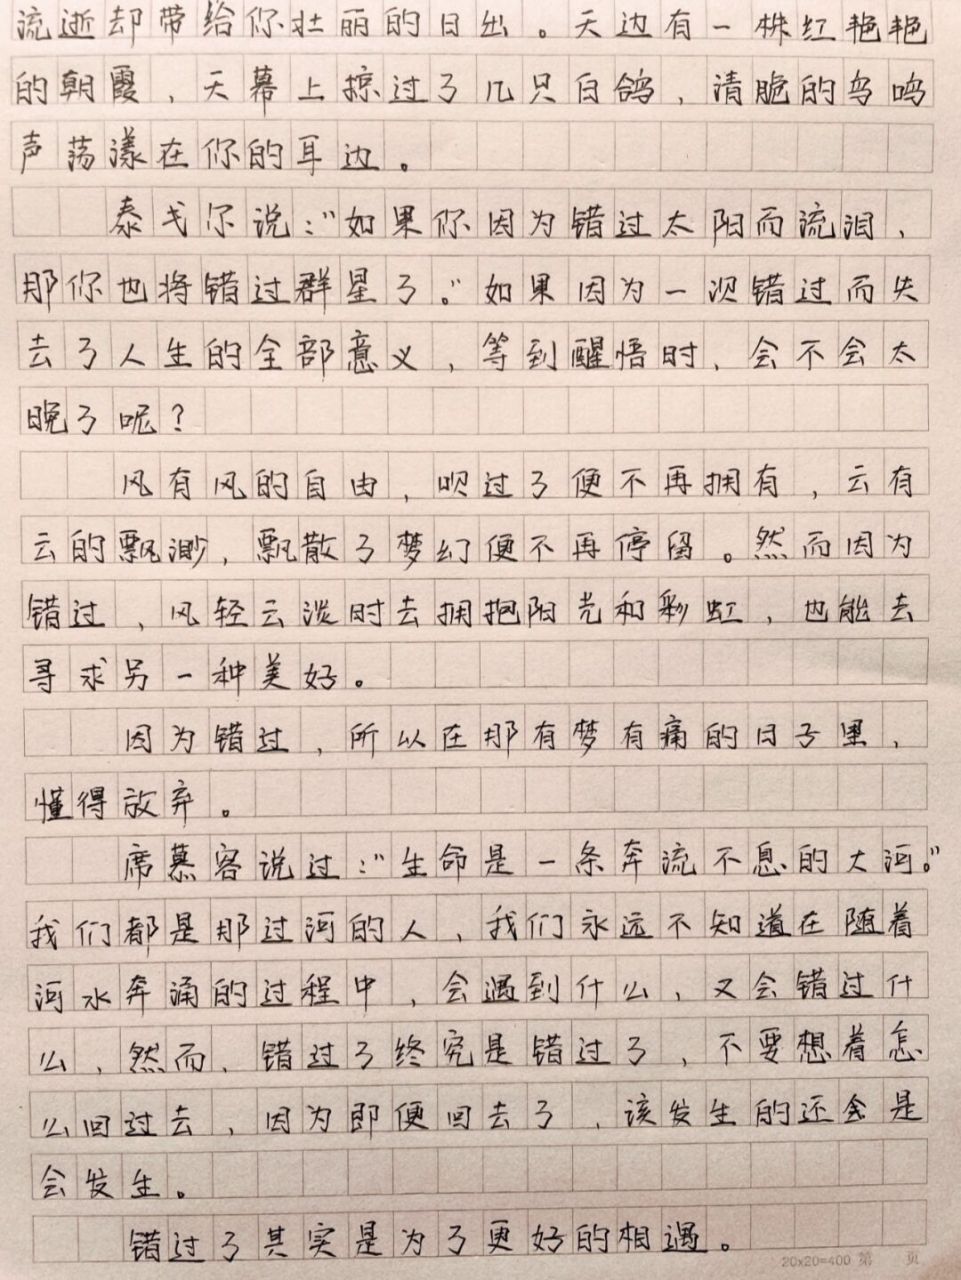 流逝却带给你壮丽的日出。天边有一株红艳艳
的朝霞，天幕上掠过了几只白鸽，清脆的鸟鸣
声荡漾在你的耳边。
泰戈尔说：“如果你因为错过太阳而流泪，
那你也将错过群星了。”如果因为一次错过而失
去了人生的全部意义，等到醒悟时，会不会太
晚了呢？
风有风的自由，吹过了便不再拥有，云有
云的飘渺，飘散了梦幻便不再停留。然而因为
错过，风轻云淡时去拥抱阳光和彩虹，也能去
寻求另一种美好。
因为错过，所以在那有梦有痛的日子里，
懂得放弃。
席慕容说过：“生命是一条奔流不息的大河。”
我们都是那过河的人，我们永远不知道在随着
河水奔涌的过程中，会遇到什么，又会错过什
么，然而，错过了终究是错过了，不要想着怎
么回过去，因为即便回去了，该发生的还会是
会发生。
错过了其实是为了更好的相遇。
20x20=400 第 页